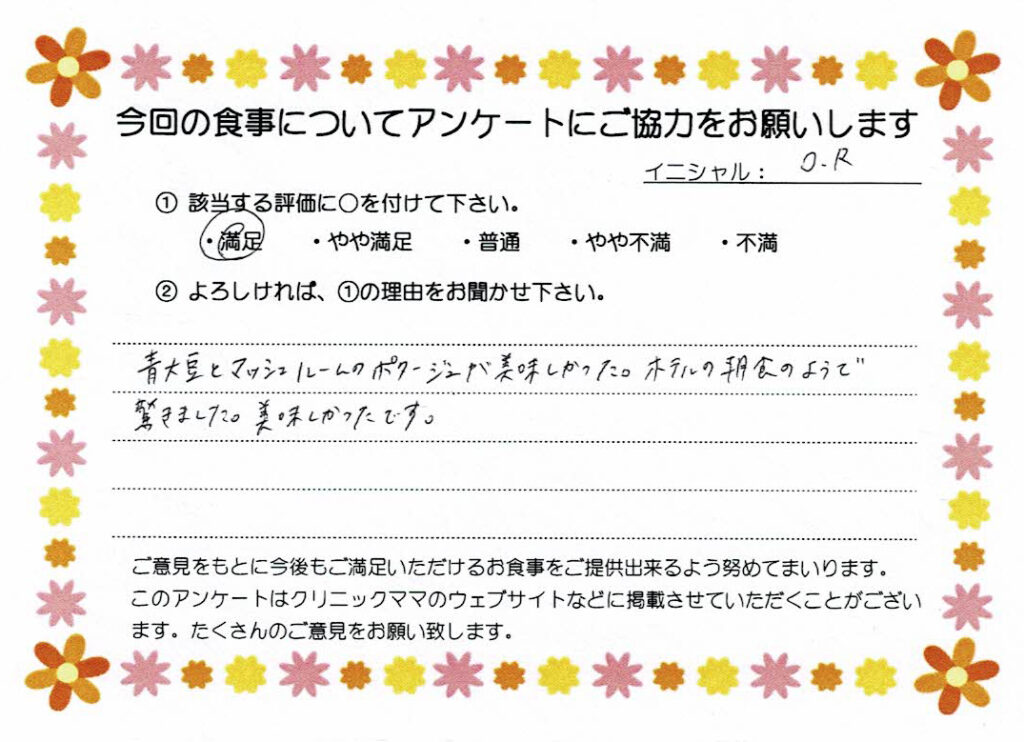 今回の食事についてアンケートにご協力をお願いします
イニシャル： O.R
① 該当する評価に○を付けて下さい。
・満足 ・やや満足 ・普通 ・やや不満 ・不満
② よろしければ、①の理由をお聞かせ下さい。
青大豆とマッシュルームのポタージュが美味しかった。ホテルの朝食のようで
驚きました。美味しかったです。
ご意見をもとに今後もご満足いただけるお食事をご提供出来るよう努めてまいります。
このアンケートはクリニックママのウェブサイトなどに掲載させていただくことがござい
ます。たくさんのご意見をお願い致します。